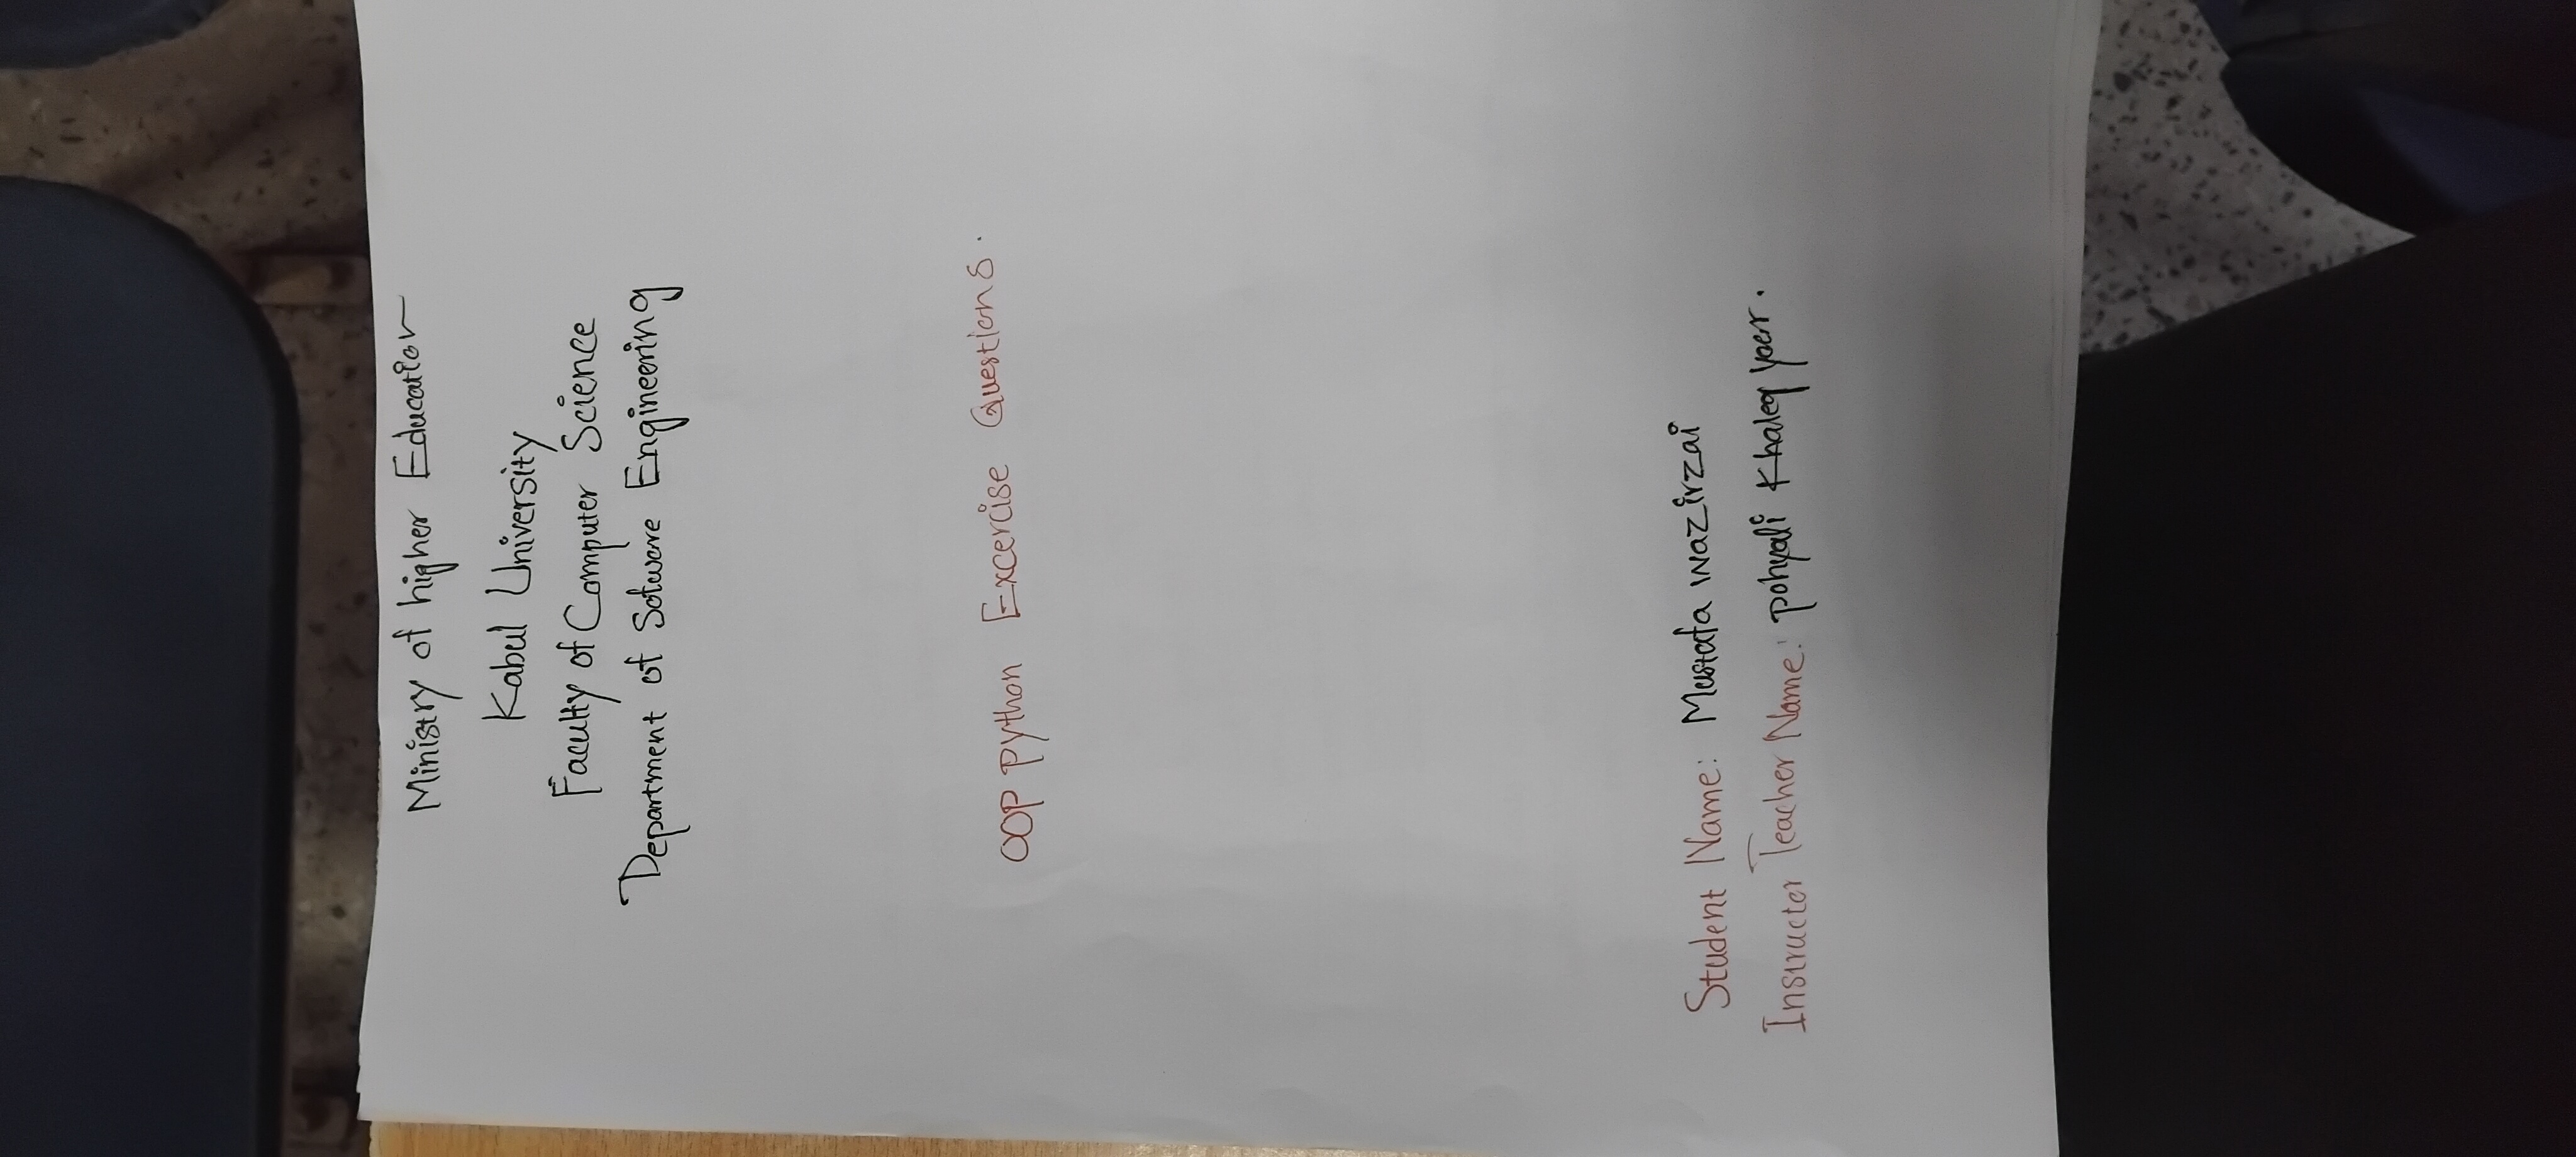 Ministry of higher Education
Kabul University
Faculty of Computer Science
Department of Sotware Engineering
OOP python Excercise Questions.
Student Name: Mustafa wazirzai
Instructor Teacher Name: pohyali Khaleq yaar.